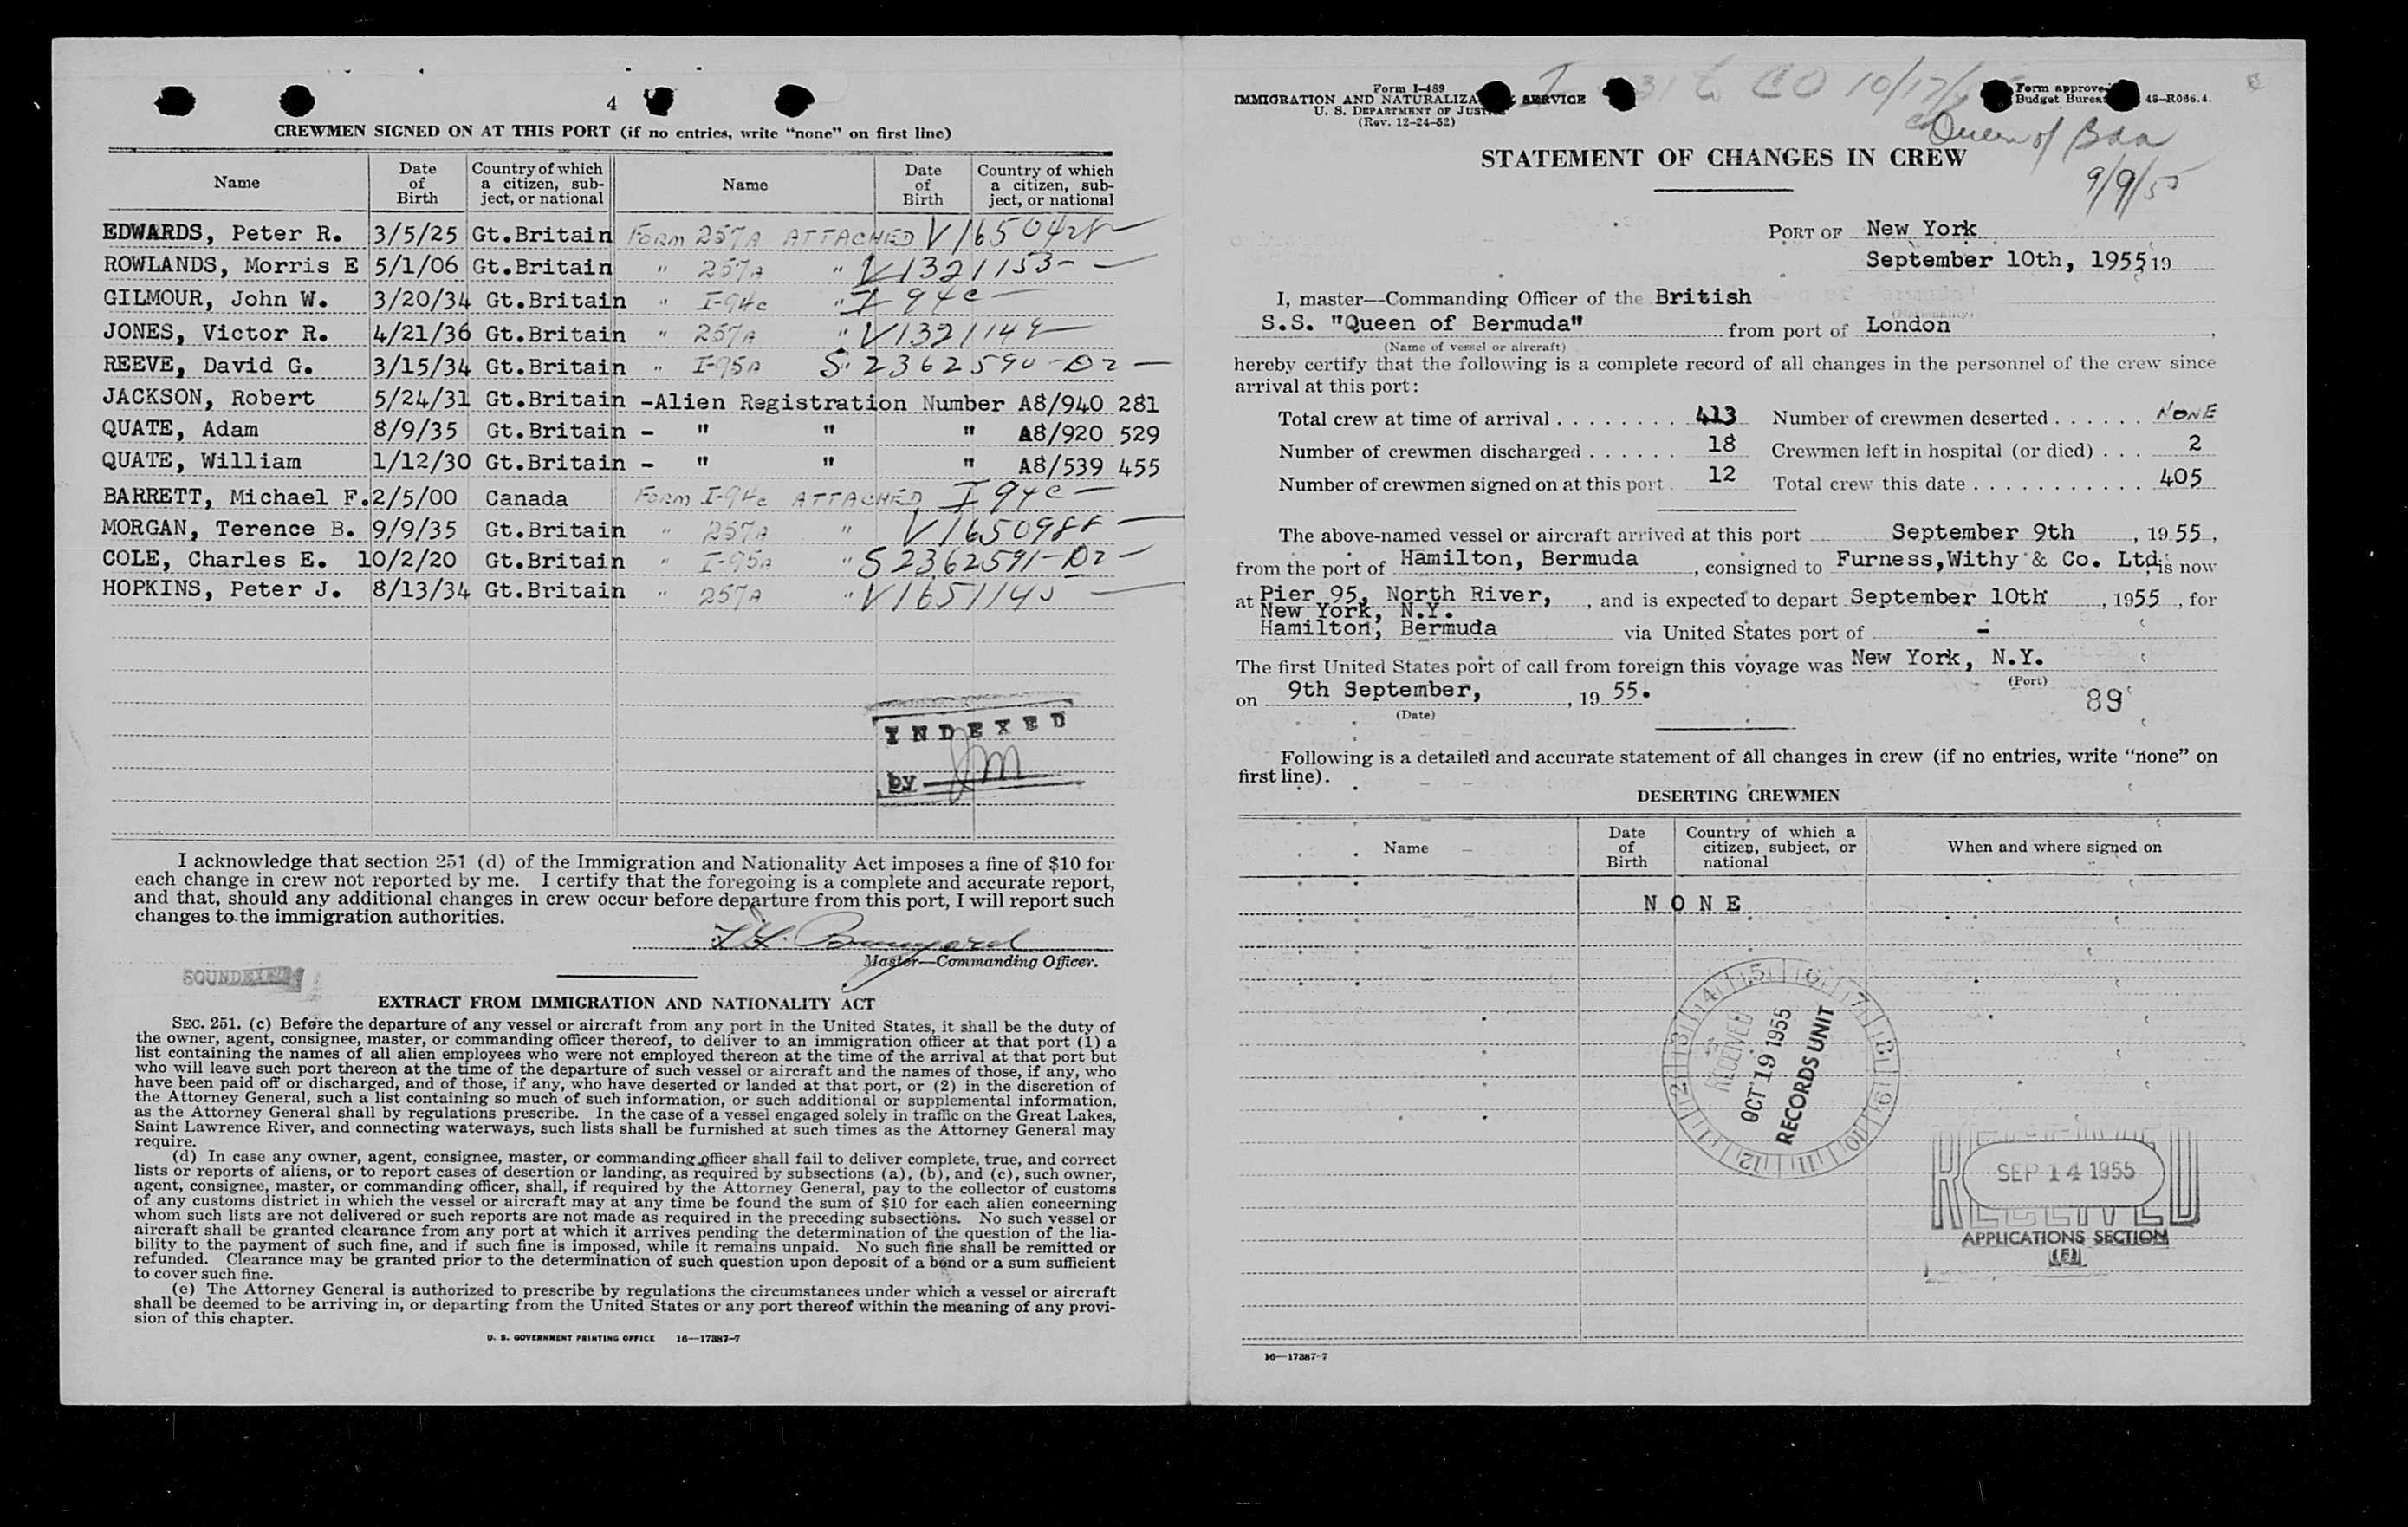 4
CREWMEN SIGNED ON AT THIS PORT (if no entries, write "none" on first line)
Name Date of Birth Country of which a citizen, subject, or national Name Date of Birth Country of which a citizen, subject, or national
EDWARDS, Peter R. 3/5/25 Gt.Britain FORM 257A ATTACHED
ROWLANDS, Morris E 5/1/06 Gt.Britain " 257A " V1321153-
GILMOUR, John W. 3/20/34 Gt.Britain " I-94c " I 94c
JONES, Victor R. 4/21/36 Gt.Britain " 257A "
REEVE, David G. 3/15/34 Gt.Britain " I-95A S" 2362590-D2
JACKSON, Robert 5/24/31 Gt.Britain -Alien Registration Number A8/940 281
QUATE, Adam 8/9/35 Gt.Britain - " " " A8/920 529
QUATE, William 1/12/30 Gt.Britain - " " " A8/539 455
BARRETT, Michael F. 2/5/00 Canada FORM I-94c ATTACHED I 94c
MORGAN, Terence B. 9/9/35 Gt.Britain " 257A "
COLE, Charles E. 10/2/20 Gt.Britain " I-95A " S2362591-D2
HOPKINS, Peter J. 8/13/34 Gt.Britain " 257A "
INDEXED
by
I acknowledge that section 251 (d) of the Immigration and Nationality Act imposes a fine of $10 for
each change in crew not reported by me. I certify that the foregoing is a complete and accurate report,
and that, should any additional changes in crew occur before departure from this port, I will report such
changes to the immigration authorities.
Master—Commanding Officer.
SOUNDEXED
EXTRACT FROM IMMIGRATION AND NATIONALITY ACT
SEC. 251. (c) Before the departure of any vessel or aircraft from any port in the United States, it shall be the duty of
the owner, agent, consignee, master, or commanding officer thereof, to deliver to an immigration officer at that port (1) a
list containing the names of all alien employees who were not employed thereon at the time of the arrival at that port but
who will leave such port thereon at the time of the departure of such vessel or aircraft and the names of those, if any, who
have been paid off or discharged, and of those, if any, who have deserted or landed at that port, or (2) in the discretion of
the Attorney General, such a list containing so much of such information, or such additional or supplemental information,
as the Attorney General shall by regulations prescribe. In the case of a vessel engaged solely in traffic on the Great Lakes,
Saint Lawrence River, and connecting waterways, such lists shall be furnished at such times as the Attorney General may
require.
(d) In case any owner, agent, consignee, master, or commanding officer shall fail to deliver complete, true, and correct
lists or reports of aliens, or to report cases of desertion or landing, as required by subsections (a), (b), and (c), such owner,
agent, consignee, master, or commanding officer, shall, if required by the Attorney General, pay to the collector of customs
of any customs district in which the vessel or aircraft may at any time be found the sum of $10 for each alien concerning
whom such lists are not delivered or such reports are not made as required in the preceding subsections. No such vessel or
aircraft shall be granted clearance from any port at which it arrives pending the determination of the question of the lia-
bility to the payment of such fine, and if such fine is imposed, while it remains unpaid. No such fine shall be remitted or
refunded. Clearance may be granted prior to the determination of such question upon deposit of a bond or a sum sufficient
to cover such fine.
(e) The Attorney General is authorized to prescribe by regulations the circumstances under which a vessel or aircraft
shall be deemed to be arriving in, or departing from the United States or any port thereof within the meaning of any provi-
sion of this chapter.
U. S. GOVERNMENT PRINTING OFFICE 16—17387-7
Form I-489
IMMIGRATION AND NATURALIZA SERVICE
U. S. DEPARTMENT OF JUSTICE
(Rev. 12-24-52)
CO 10/17/
Form approve
Budget Burea 43-R066.4.
Queen of Bda
9/9/55
STATEMENT OF CHANGES IN CREW
PORT OF New York
September 10th, 1955 19
I, master—Commanding Officer of the British
(Nationality)
S.S. "Queen of Bermuda" from port of London,
(Name of vessel or aircraft)
hereby certify that the following is a complete record of all changes in the personnel of the crew since
arrival at this port:
Total crew at time of arrival 413 Number of crewmen deserted NONE
Number of crewmen discharged 18 Crewmen left in hospital (or died) 2
Number of crewmen signed on at this port 12 Total crew this date 405
The above-named vessel or aircraft arrived at this port September 9th, 1955,
from the port of Hamilton, Bermuda, consigned to Furness,Withy & Co. Ltd. is now
at Pier 95, North River, New York, N.Y., and is expected to depart September 10th, 1955, for
Hamilton, Bermuda via United States port of -
The first United States port of call from foreign this voyage was New York, N.Y.
(Port)
on 9th September, 1955.
(Date)
89
Following is a detailed and accurate statement of all changes in crew (if no entries, write "none" on
first line).
DESERTING CREWMEN
Name Date of Birth Country of which a citizen, subject, or national When and where signed on
NONE
1 2 3 4 5 6 7 8 9 10 11 12
RECEIVED
OCT 19 1955
RECORDS UNIT
RECEIVED
SEP 14 1955
APPLICATIONS SECTION
(E)
16—17387-7